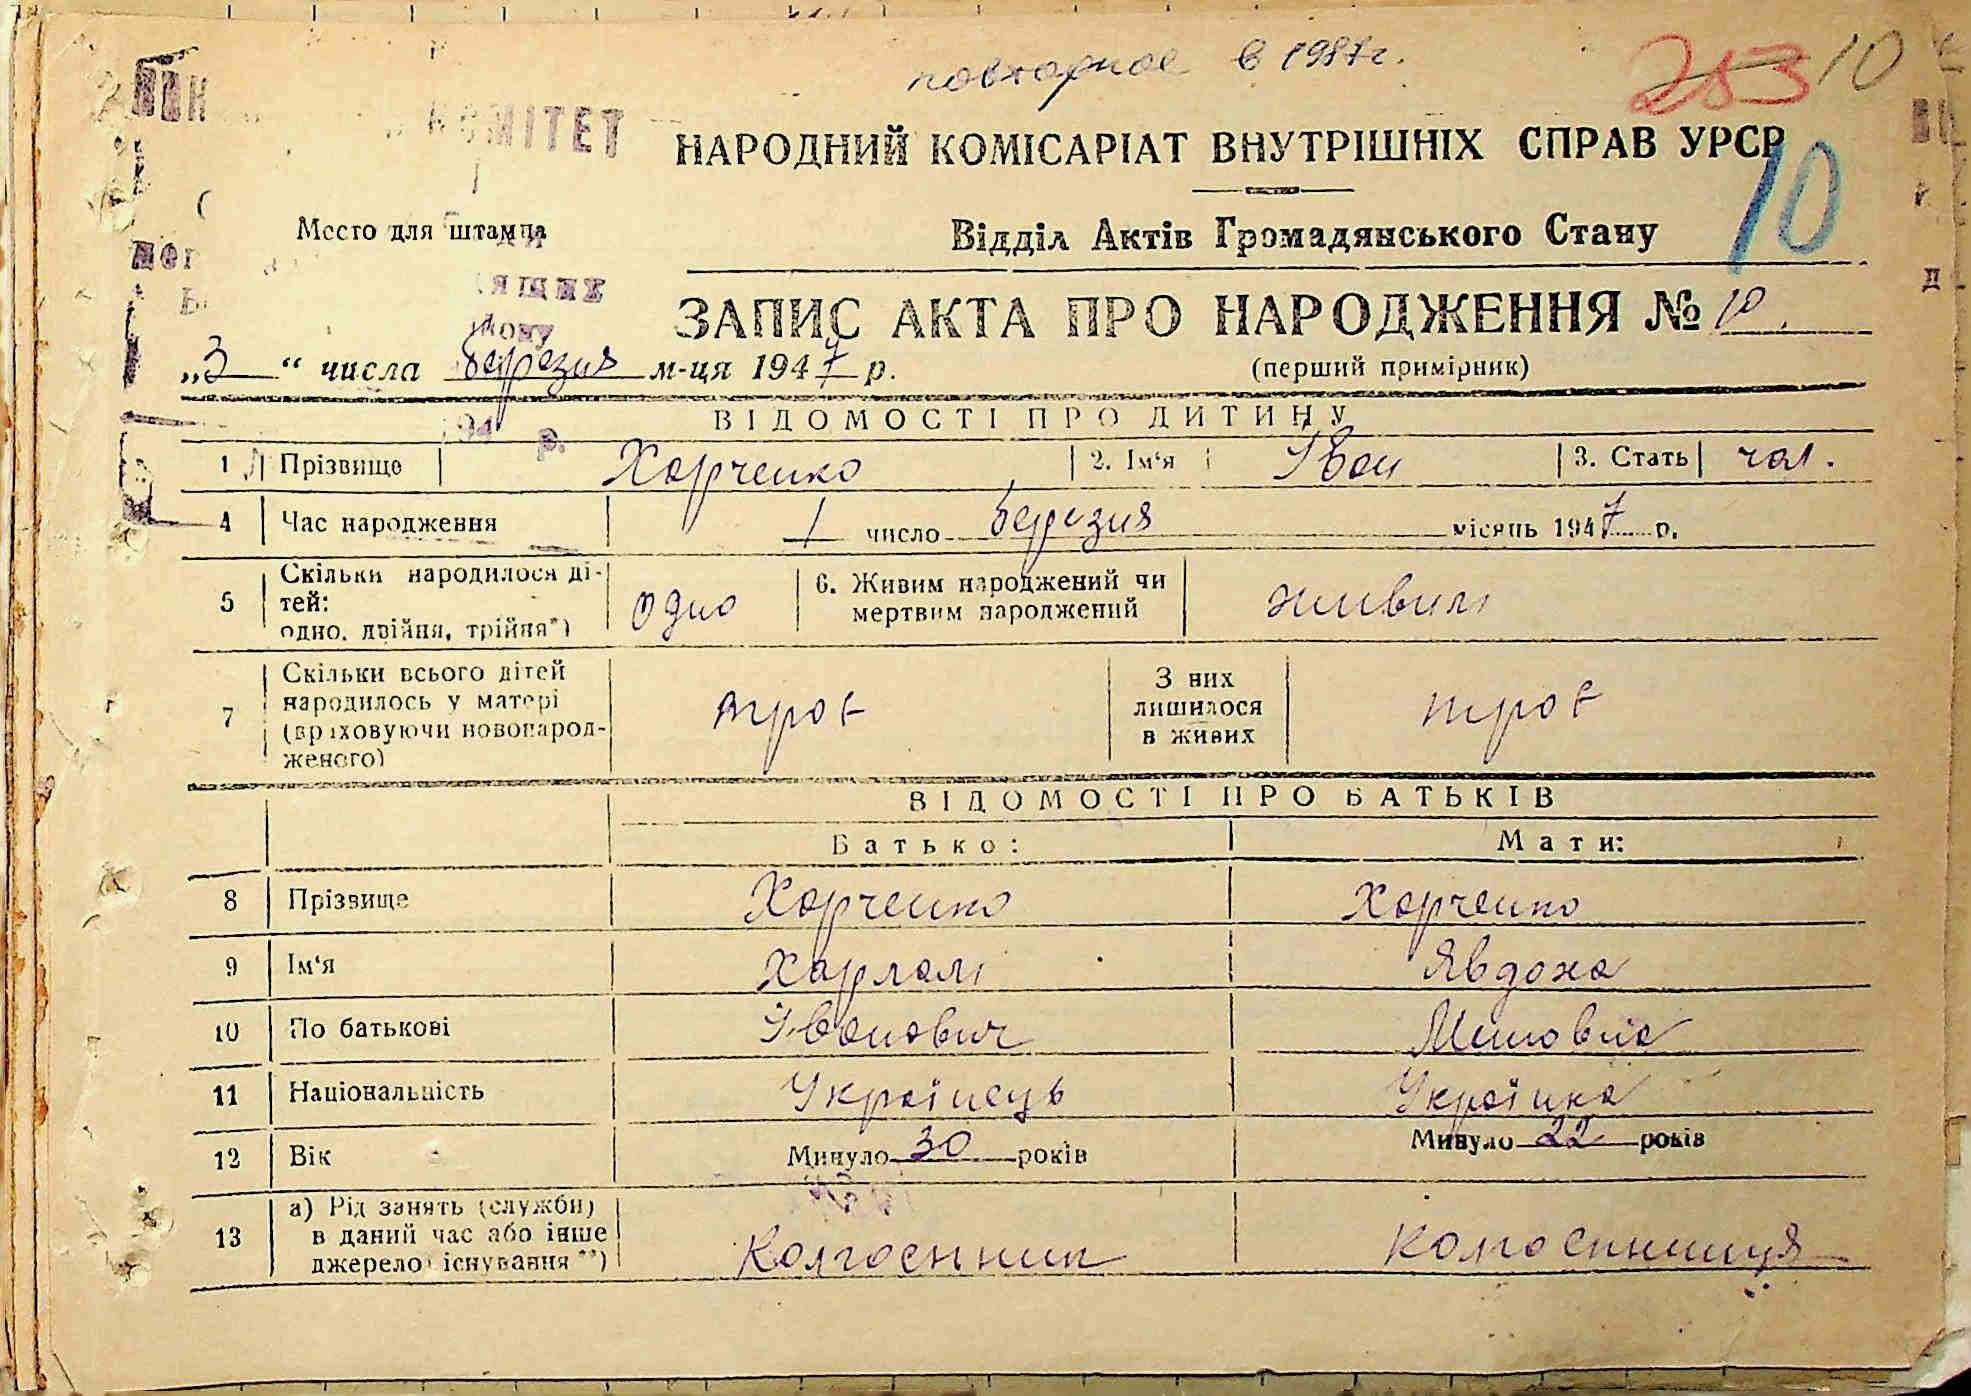 повторное в 1987г.
283 10
КОМІТЕТ
НАРОДНИЙ КОМІСАРІАТ ВНУТРІШНІХ СПРАВ УРСР
10
Место для штампа
Відділ Актів Громадянського Стану
ЗАПИС АКТА ПРО НАРОДЖЕННЯ № 10.
„3“ числа березня м-ця 1947 р.
(перший примірник)
ВІДОМОСТІ ПРО ДИТИНУ
1 Прізвище Харченко 2. Ім‘я Іван 3. Стать чол.
4 Час народження 1 число березня місяць 1947 р.
5 Скільки народилося ді-
тей:
одно, двійня, трійня*)
одно
6. Живим народжений чи
мертвим народжений
живим
7 Скільки всього дітей
народилось у матері
(враховуючи новонарод-
женого)
троє
З них
лишилося
в живих
троє
ВІДОМОСТІ ПРО БАТЬКІВ
Батько: Мати:
8 Прізвище Харченко Харченко
9 Ім‘я Харлам Явдоха
10 По батькові Іванович
11 Національність Українець Українка
12 Вік Минуло 30 років Минуло 22 років
13 а) Рід занять (служби)
в даний час або інше
джерело існування **)
Колгоспник Колгоспниця